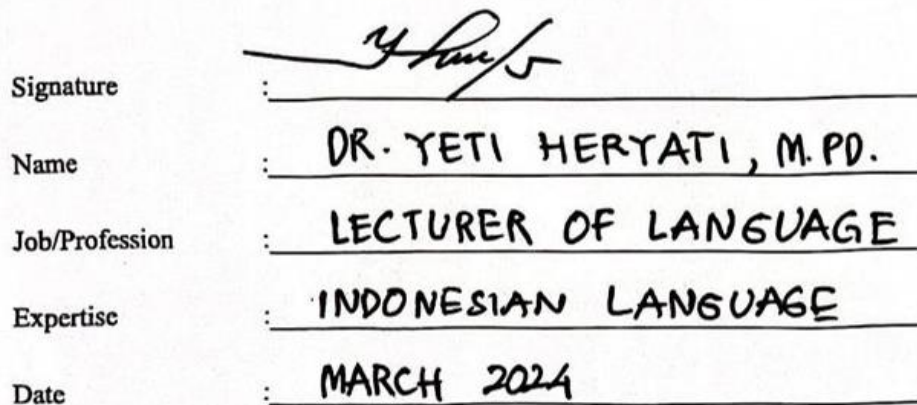 Signature :
Name : DR. YETI HERYATI, M.PD.
Job/Profession : LECTURER OF LANGUAGE
Expertise : INDONESIAN LANGUAGE
Date : MARCH 2024